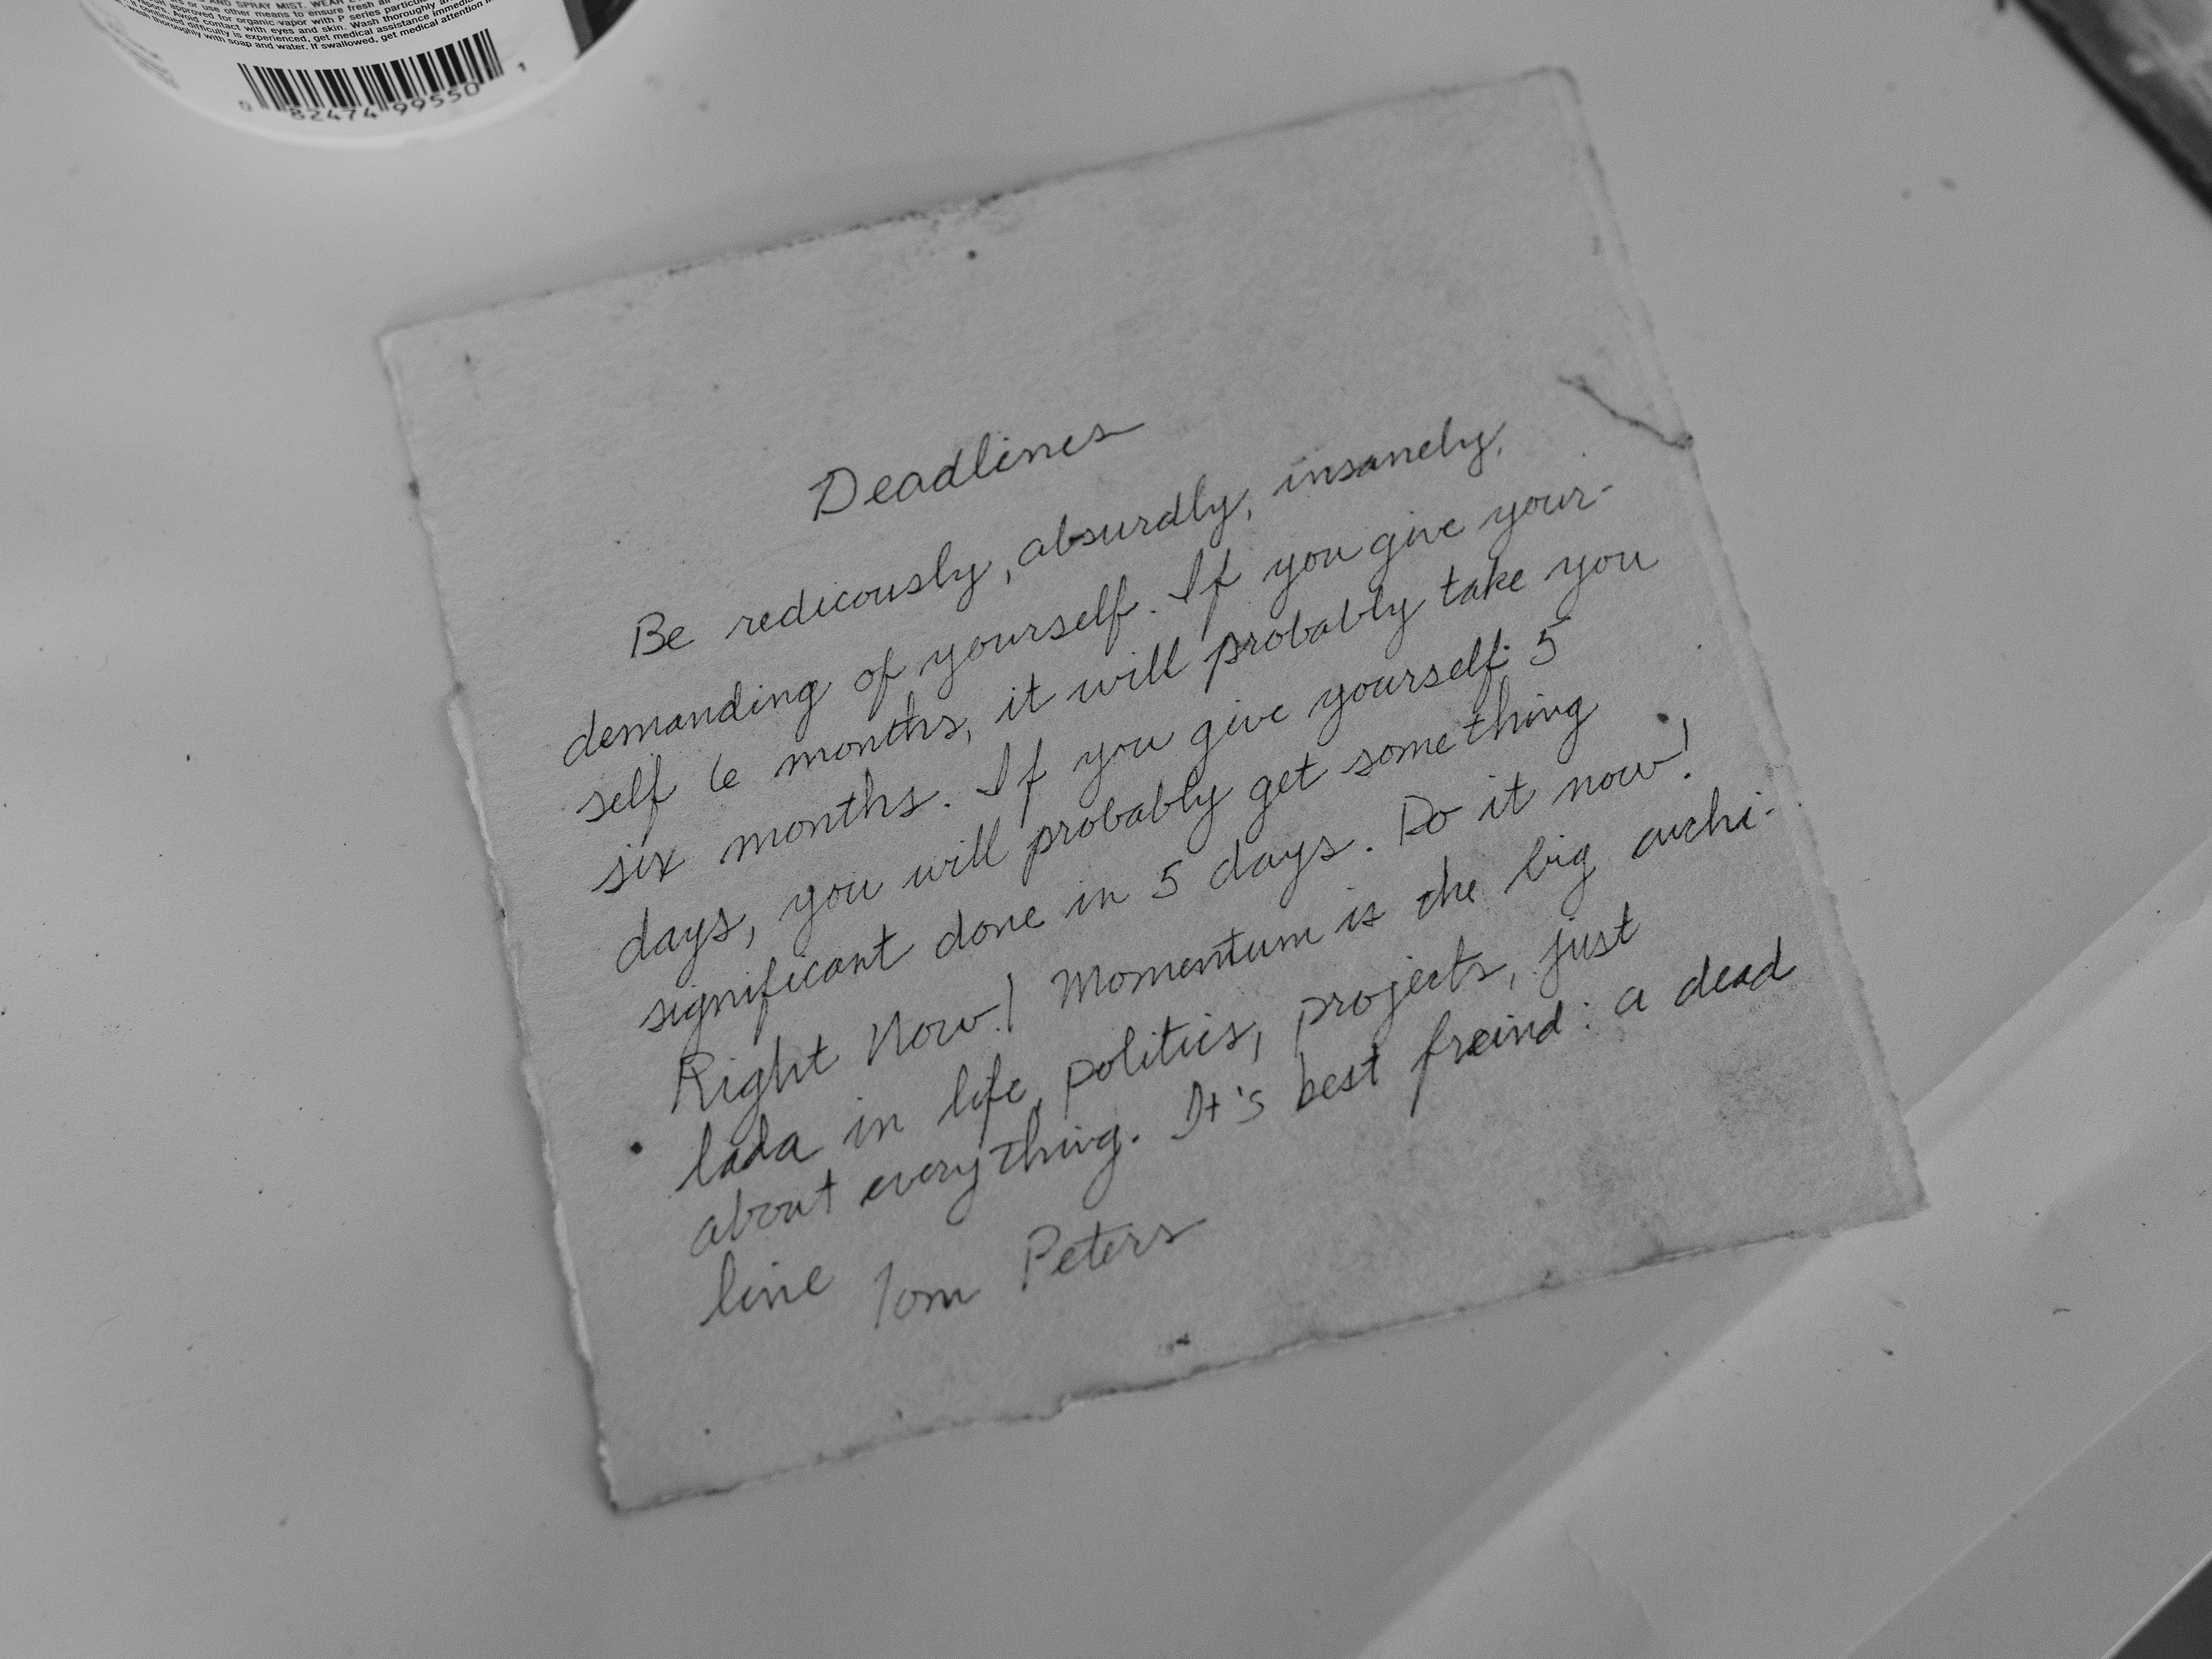 AND SPRAY MIST. WEAR
or use other means to ensure fresh air
approved for organic vapor with P series particu
contact with eyes and skin. Wash thoroughly a
difficulty is experienced, get medical assistance immedi
with soap and water. If swallowed, get medical attention
0 82474 99550 1
Deadlines
Be rediculously, absurdly, insanely,
demanding of yourself. If you give your-
self 6 months, it will probably take you
six months. If you give yourself 5
days, you will probably get something
significant done in 5 days. Do it now!
Right Now! Momentum is the big auchi-
lada in life, politics, projects, just
about everything. It's best freind: a dead
line Tom Peters